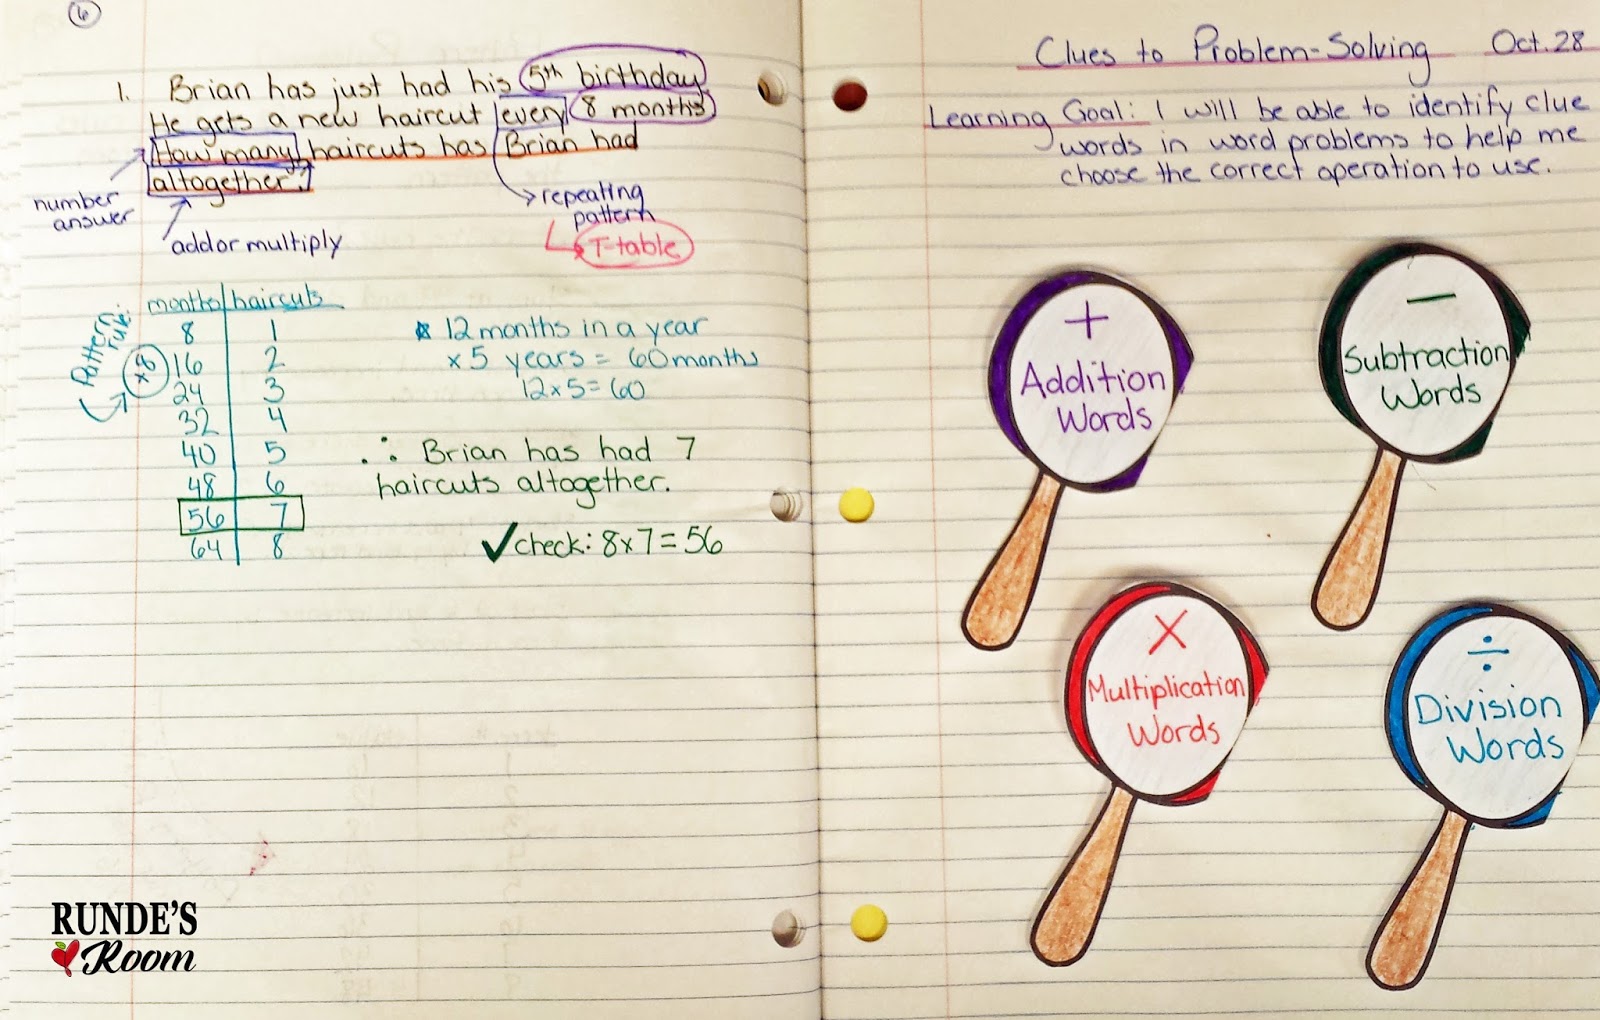 6
1. Brian has just had his 5th birthday.
He gets a new haircut every 8 months.
How many haircuts has Brian had
altogether?
number
answer
add or multiply
repeating
pattern
T-table
Pattern
rule:
x8
months haircuts
8 1
16 2
24 3
32 4
40 5
48 6
56 7
64 8
* 12 months in a year
x 5 years = 60 months
12 x 5 = 60
∴ Brian has had 7
haircuts altogether.
✓check: 8x7=56
RUNDE'S
Room
Clues to Problem-Solving Oct. 28
Learning Goal: I will be able to identify clue
words in word problems to help me
choose the correct operation to use.
+
Addition
Words
−
Subtraction
Words
X
Multiplication
Words
÷
Division
Words